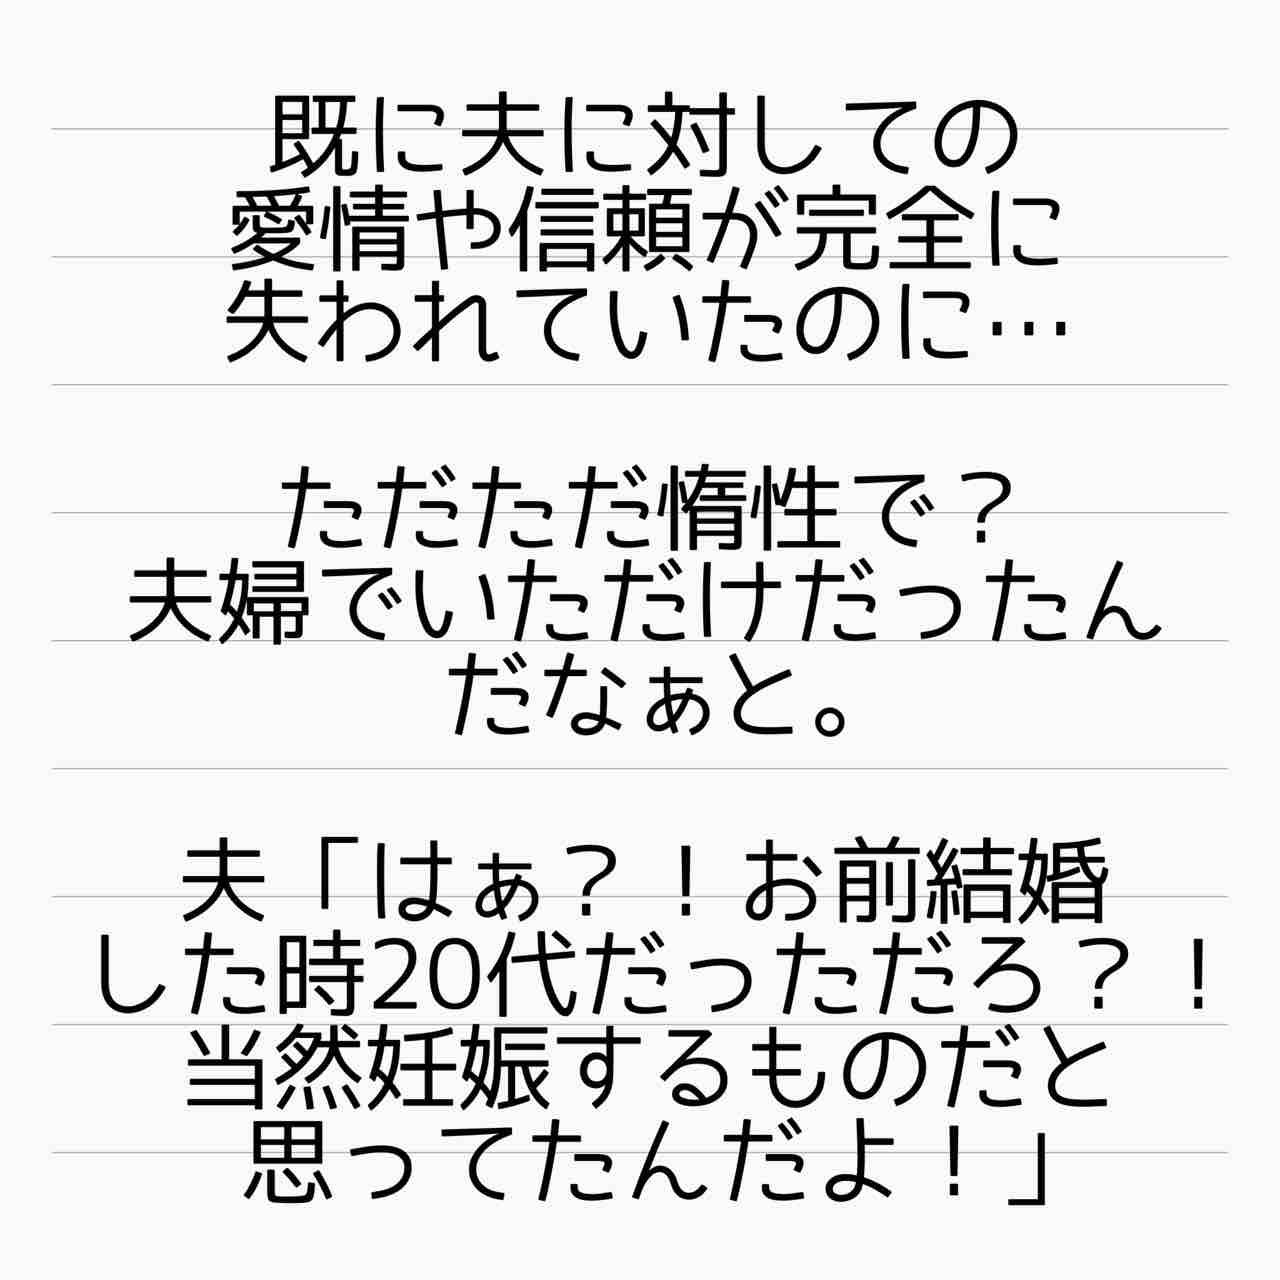 既に夫に対しての
愛情や信頼が完全に
失われていたのに…
ただただ惰性で？
夫婦でいただけだったん
だなぁと。
夫「はぁ？！お前結婚
した時20代だっただろ？！
当然妊娠するものだと
思ってたんだよ！」